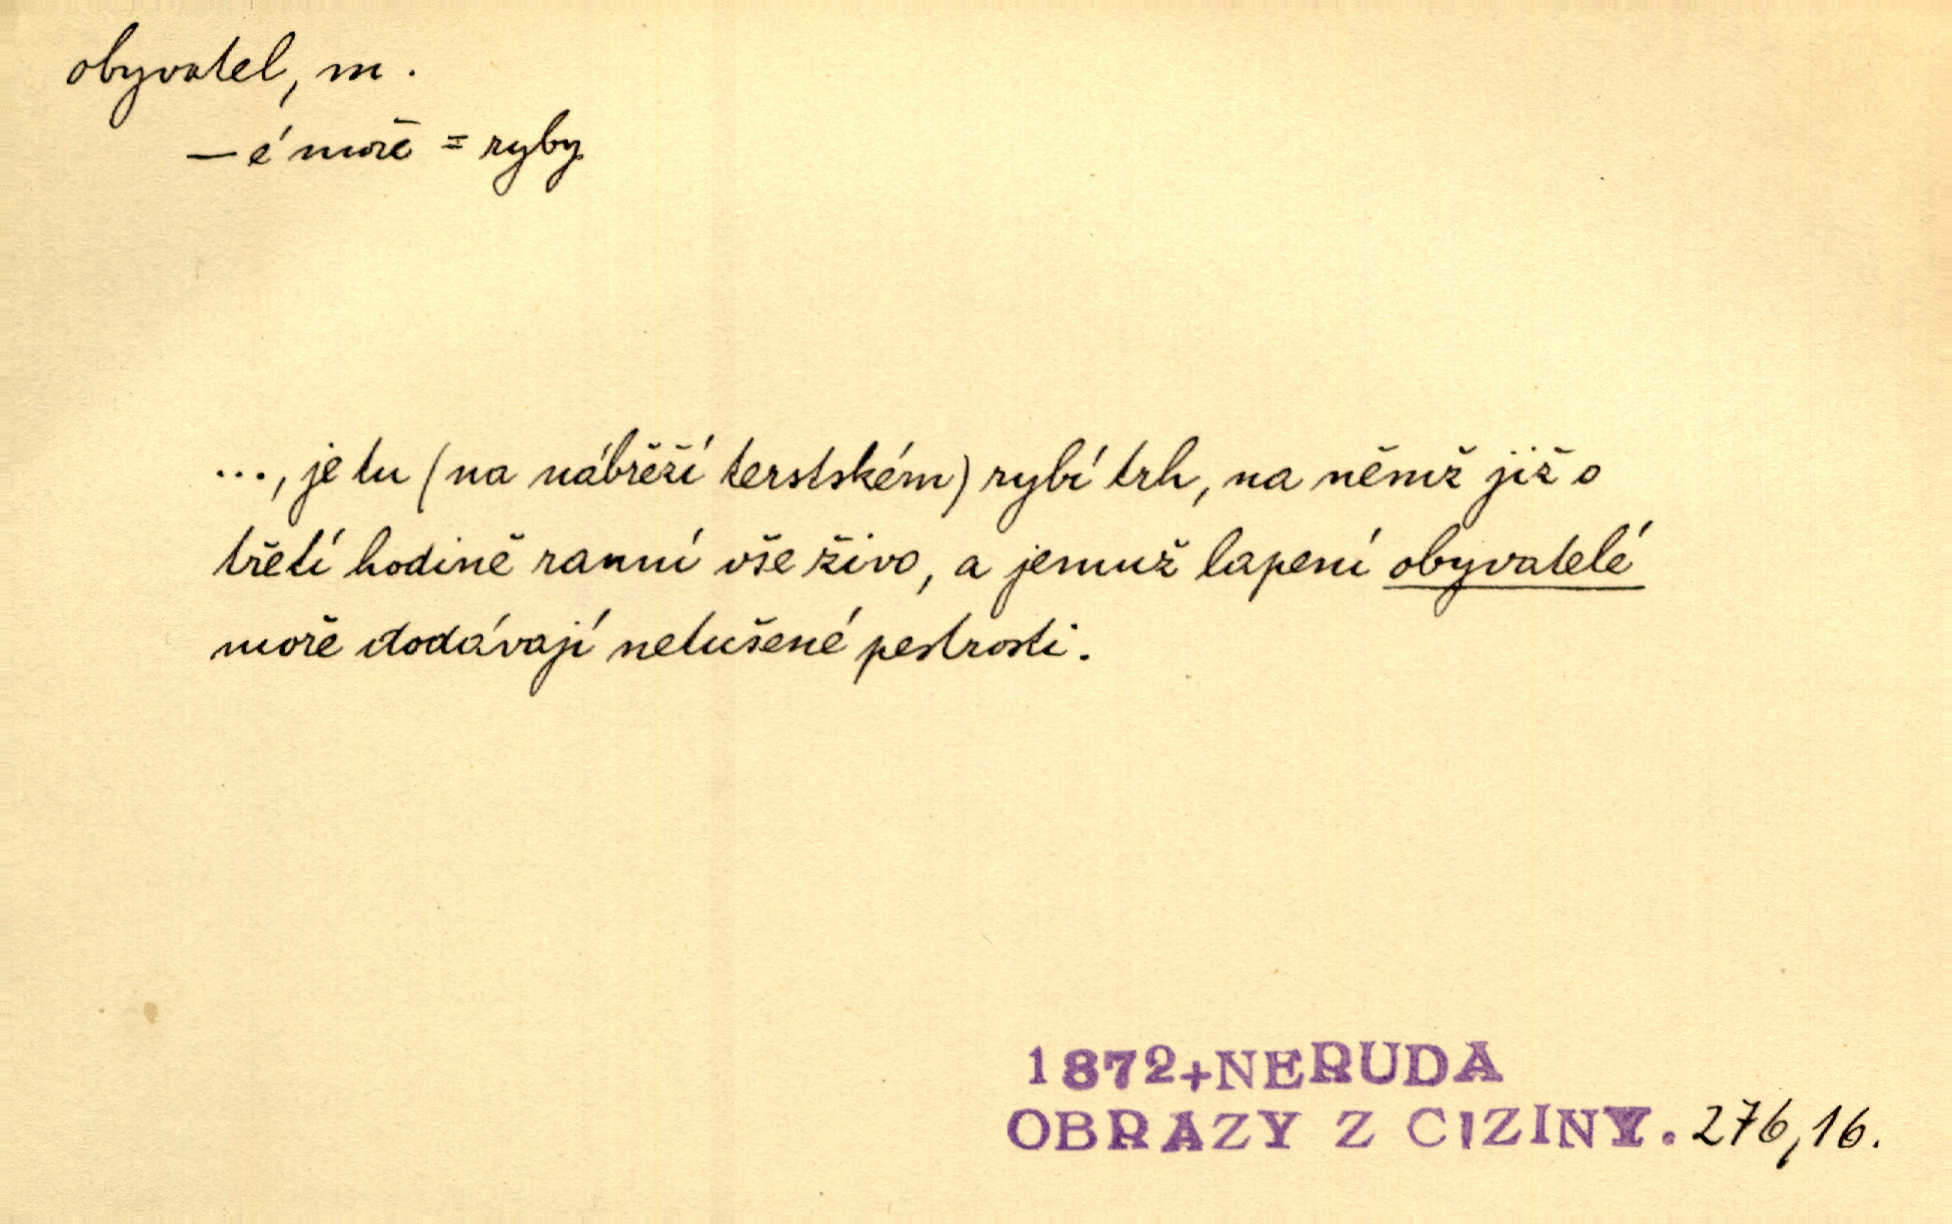 obyvatel, m.
— é moře = ryby
..., je tu (na nábřěží terstském) rybí trh, na němž již o
třetí hodině ranní vše živo, a jemuž lapení obyvatelé
moře dodávají netušené pestrosti.
1872+NERUDA
OBRAZY Z CIZINY. 276,16.